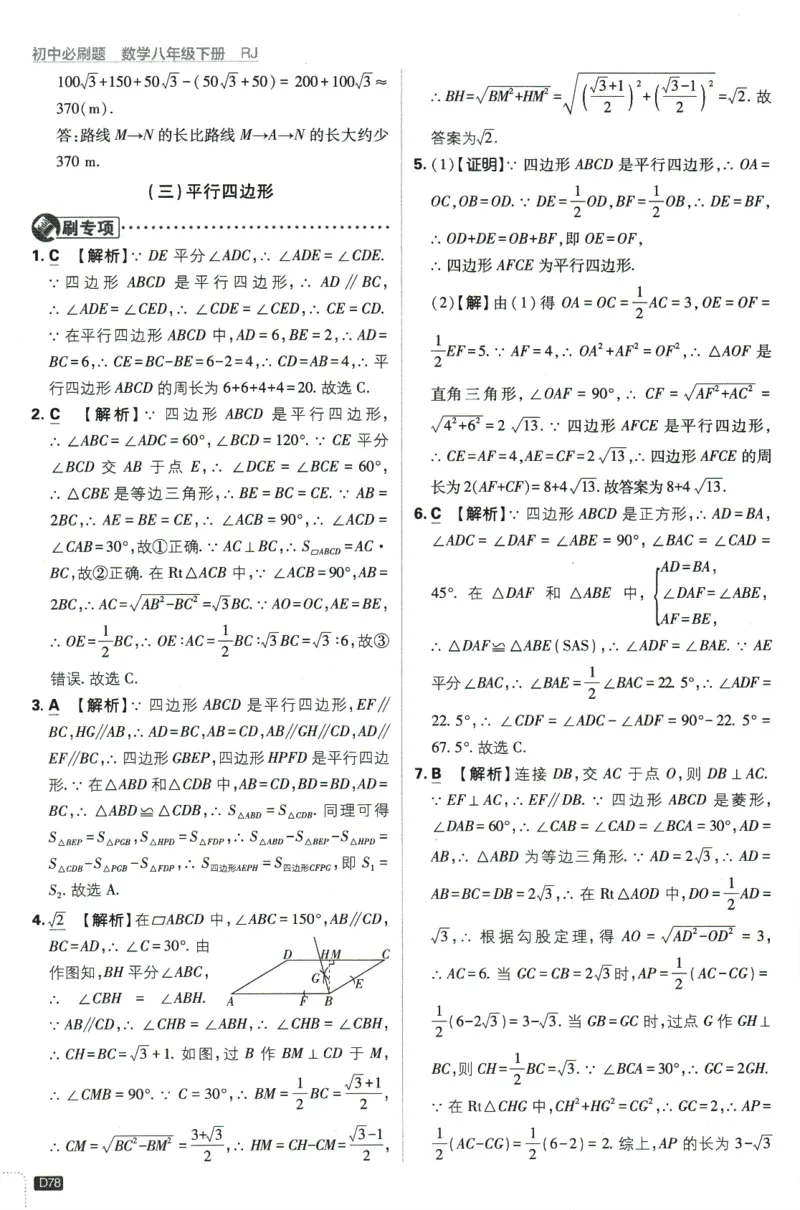 初中必刷题 数学八年级下册 RJ
100√3+150+50√3-(50√3+50)=200+100√3≈
370(m).
答:路线 M→N 的长比路线 M→A→N 的长大约少
370 m.
(三)平行四边形
刷专项
1. C 【解析】∵ DE 平分∠ADC,∴ ∠ADE=∠CDE.
∵ 四边形 ABCD 是平行四边形,∴ AD∥BC,
∴ ∠ADE=∠CED,∴ ∠CDE=∠CED,∴ CE=CD.
∵ 在平行四边形 ABCD 中,AD=6,BE=2,∴ AD=
BC=6,∴ CE=BC-BE=6-2=4,∴ CD=AB=4,∴ 平
行四边形 ABCD 的周长为 6+6+4+4=20. 故选 C.
2. C 【解析】∵ 四边形 ABCD 是平行四边形,
∴ ∠ABC=∠ADC=60°,∠BCD=120°. ∵ CE 平分
∠BCD 交 AB 于点 E,∴ ∠DCE=∠BCE=60°,
∴ △CBE 是等边三角形,∴ BE=BC=CE. ∵ AB=
2BC,∴ AE=BE=CE,∴ ∠ACB=90°,∴ ∠ACD=
∠CAB=30°,故①正确. ∵ AC⊥BC,∴ S▱ABCD=AC·
BC,故②正确. 在 Rt△ACB 中,∵ ∠ACB=90°,AB=
2BC,∴ AC=√(AB²-BC²)=√3BC. ∵ AO=OC,AE=BE,
∴ OE=1/2BC,∴ OE∶AC=1/2BC∶√3BC=√3∶6,故③
错误. 故选 C.
3. A 【解析】∵ 四边形 ABCD 是平行四边形,EF∥
BC,HG∥AB,∴ AD=BC,AB=CD,AB∥GH∥CD,AD∥
EF∥BC,∴ 四边形 GBEP,四边形 HPFD 是平行四边
形. ∵ 在△ABD 和△CDB 中,AB=CD,BD=BD,AD=
BC,∴ △ABD≌△CDB,∴ S△ABD=S△CDB. 同理可得
S△BEP=S△PGB,S△HPD=S△FDP,∴ S△ABD-S△BEP-S△HPD=
S△CDB-S△PGB-S△FDP,∴ S四边形AEPH=S四边形CFPG,即 S₁=
S₂. 故选 A.
4. √2 【解析】在▱ABCD 中,∠ABC=150°,AB∥CD,
BC=AD,∴ ∠C=30°. 由
作图知,BH 平分∠ABC,
∴ ∠CBH=∠ABH.
D H M C
G E
A F B
∵ AB∥CD,∴ ∠CHB=∠ABH,∴ ∠CHB=∠CBH,
∴ CH=BC=√3+1. 如图,过 B 作 BM⊥CD 于 M,
∴ ∠CMB=90°. ∵ C=30°,∴ BM=1/2BC=(√3+1)/2,
∴ CM=√(BC²-BM²)=(3+√3)/2,∴ HM=CH-CM=(√3-1)/2,
∴ BH=√(BM²+HM²)=√(((√3+1)/2)²+((√3-1)/2)²)=√2. 故
答案为√2.
5. (1)【证明】∵ 四边形 ABCD 是平行四边形,∴ OA=
OC,OB=OD. ∵ DE=1/2OD,BF=1/2OB,∴ DE=BF,
∴ OD+DE=OB+BF,即 OE=OF,
∴ 四边形 AFCE 为平行四边形.
(2)【解】由(1)得 OA=OC=1/2AC=3,OE=OF=
1/2EF=5. ∵ AF=4,∴ OA²+AF²=OF²,∴ △AOF 是
直角三角形,∠OAF=90°,∴ CF=√(AF²+AC²)=
√(4²+6²)=2√13. ∵ 四边形 AFCE 是平行四边形,
∴ CE=AF=4,AE=CF=2√13,∴ 四边形 AFCE 的周
长为 2(AF+CF)=8+4√13. 故答案为 8+4√13.
6. C 【解析】∵ 四边形 ABCD 是正方形,∴ AD=BA,
∠ADC=∠DAF=∠ABE=90°,∠BAC=∠CAD=
45°. 在 △DAF 和 △ABE 中,{AD=BA,
∠DAF=∠ABE,
AF=BE,
∴ △DAF≌△ABE(SAS),∴ ∠ADF=∠BAE. ∵ AE
平分∠BAC,∴ ∠BAE=1/2∠BAC=22.5°,∴ ∠ADF=
22.5°,∴ ∠CDF=∠ADC-∠ADF=90°-22.5°=
67.5°. 故选 C.
7. B 【解析】连接 DB,交 AC 于点 O,则 DB⊥AC.
∵ EF⊥AC,∴ EF∥DB. ∵ 四边形 ABCD 是菱形,
∠DAB=60°,∴ ∠CAB=∠CAD=∠BCA=30°,AD=
AB,∴ △ABD 为等边三角形. ∵ AD=2√3,∴ AD=
AB=BC=DB=2√3,∴ 在 Rt△AOD 中,DO=1/2AD=
√3,∴ 根据勾股定理,得 AO=√(AD²-OD²)=3,
∴ AC=6. 当 GC=CB=2√3时,AP=1/2(AC-CG)=
1/2(6-2√3)=3-√3. 当 GB=GC 时,过点 G 作 GH⊥
BC,则 CH=1/2BC=√3. ∵ ∠BCA=30°,∴ GC=2GH.
∵ 在 Rt△CHG 中,CH²+HG²=CG²,∴ GC=2,∴ AP=
1/2(AC-CG)=1/2(6-2)=2. 综上,AP 的长为 3-√3
D78